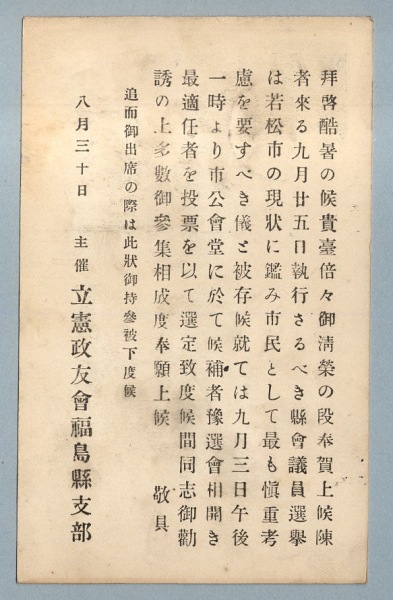 拜啓酷暑の候貴臺倍々御淸榮の段奉賀上候陳
者來る九月廿五日執行さるべき縣會議員選擧
は若松市の現狀に鑑み市民として最も愼重考
慮を要すべき儀と被存候就ては九月三日午後
一時より市公會堂に於て候補者豫選會相開き
最適任者を投票を以て選定致度候間同志御勸
誘の上多數御參集相成度奉願上候　敬具
追而御出席の際は此狀御持參被下度候
八月三十日　主催　立憲政友會福島縣支部